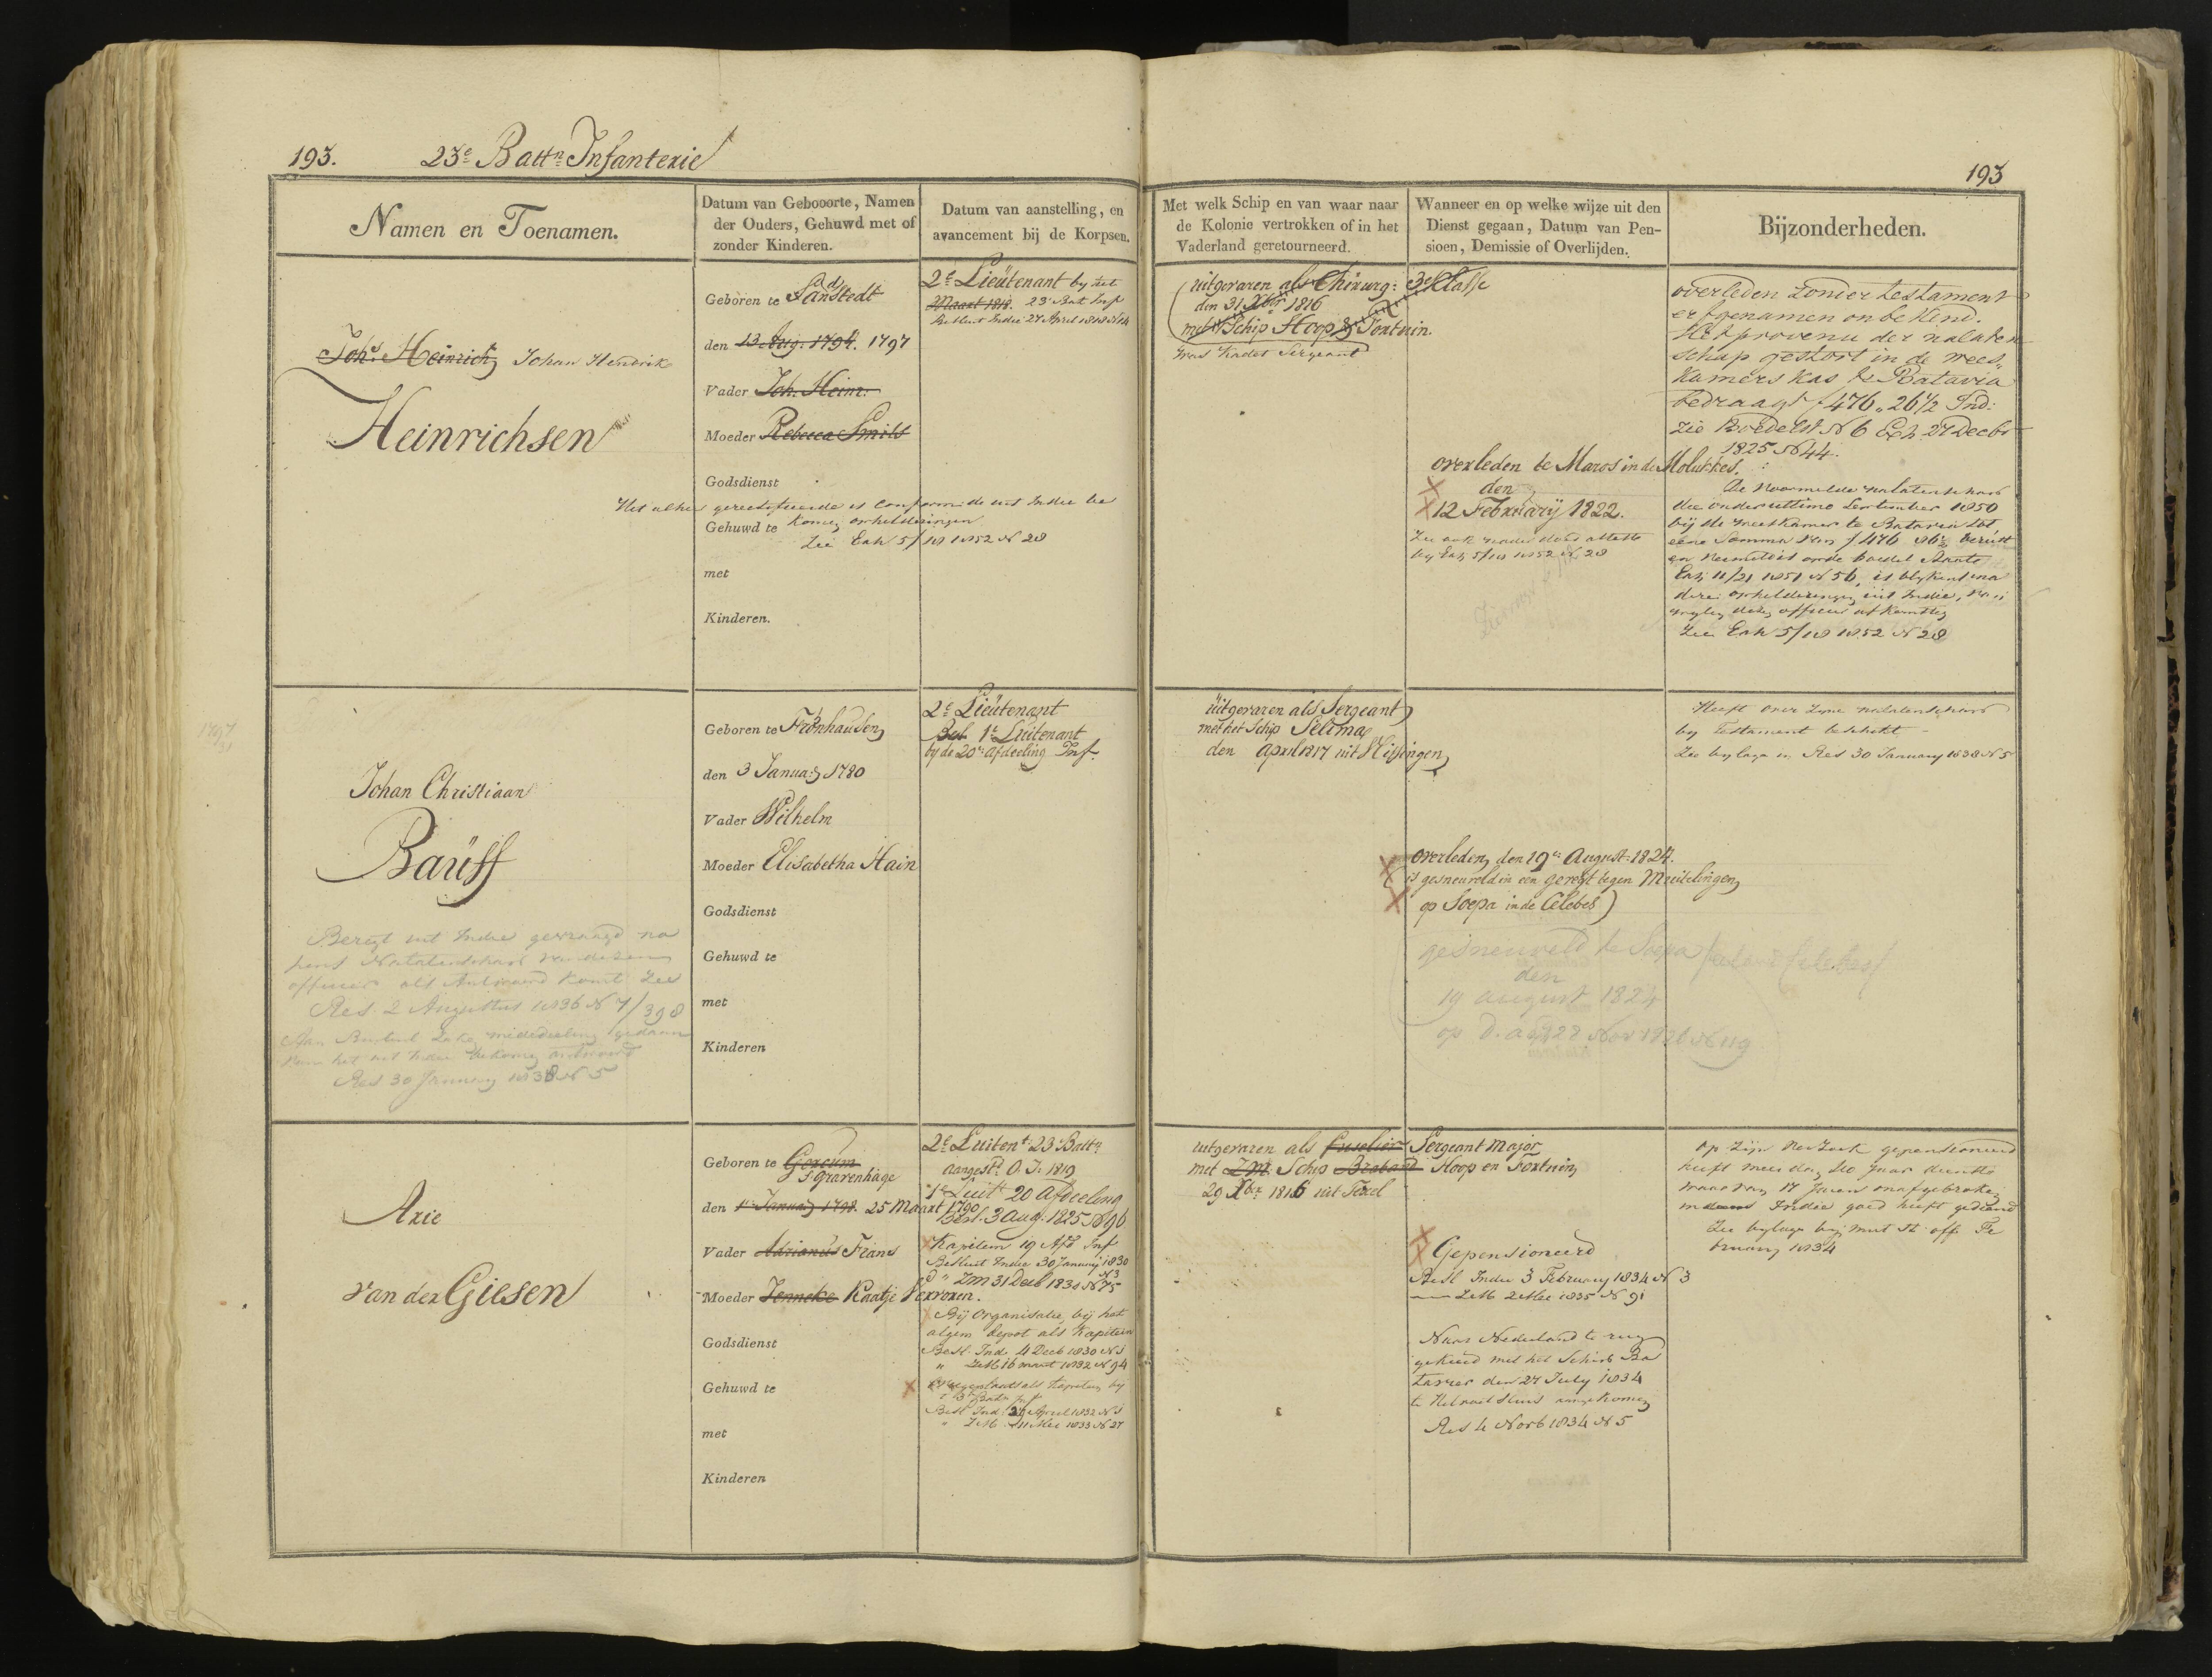 193. 23e Battn Infanterie
193
Namen en Toenamen.
Datum van Gebooorte, Namen
der Ouders, Gehuwd met of
zonder Kinderen.
Datum van aanstelling, en
avancement bij de Korpsen.
Met welk Schip en van waar naar
de Kolonie vertrokken of in het
Vaderland geretourneerd.
Wanneer en op welke wijze uit den
Dienst gegaan, Datum van Pen-
sioen, Demissie of Overlijden.
Bijzonderheden.
Johs Heinrich Johan Hendrik
Heinrichsen
Geboren te
den 13 Aug. 1794. 1797
Vader Joh. Heinr:
Moeder Rebecca Smils
Godsdienst
Het alhier gerectifieerde is conform de uit Indie be
Gehuwd te komen ophelderingen
Zie Exh 5/10 1852 N 28
met
Kinderen.
2e Lieutenant by het
Maart 1818. 23 Bat Inf
Besluit Indie 27 April 1818 N 14
uitgevaren als Chirurg: 3e Klasse
den 31 Xbr 1816
met Schip Hoop & Fortuin.
was Kadet Sergeant
overleden te Maros in de Molukkes.
den
12 February 1822.
Zie ook nader dood atteste
by Exh 5/10 1852 N 28
overleden zonder testament
erfgenamen onbekend.
Het provenu der nalaten
schap gestort in de wees,,
kamers kas te Batavia
bedraagt f 476,,26 1/2 Ind:
zie Boedelst N 6 Exh. 27 Decbr
1825 N 44.
De voormelde nalatenschap
die onder ultimo September 1850
bij de weeskamer te Batavia tot
eene somma van f 476 26 1/2 berust
en vermeld is onder boedel Staat
Exh 11/21 1851 N 56, is blykens na
dere ophelderingen uit Indie, van
wegen dezen officier afkomstig
Zie Exh 5/10 1852 N 28
Johan Christiaan
Baüff
Beregt uit Indie gevraagd na
pens Nalatenschap van dezen
officier als Antwoord komt Zee
Res. 2 Augustus 1836 N 7/398
mededeeling gedaan
van het uit Indie bekomen antwoord
Res 30 January 1838 N 5
Geboren te Frönhausen
den 3 Januarij 1780
Vader Wilhelm
Moeder Elisabetha Hain
Godsdienst
Gehuwd te
met
Kinderen
2e Lieutenant
1e Luitenant
by de 20e afdeeling Inf.
uitgevaren als Sergeant
met het Schip Selima
den April 1817 uit Vlissingen
overleden den 19en August: 1824.
(is gesneuveld in een gevegt tegen Muitelingen
op Soepa in de Celebes)
gesneuveld te Soepa (eiland Celebes)
den
19 august 1824
Heeft over zyne nalatenschap
by Testament beschikt
Zie bylage in Res 30 January 1838 N 5
Arie
van der Giesen
Geboren te Gorcum
s'Gravenhage
den 1e Januarij 1798. 25 Maart 1790
Vader Adrianus Frans
Moeder Jenneke Kaatje Verroxen.
Godsdienst
Gehuwd te
met
Kinderen
2e Luitent 23 Battn
aangestd O. I. 1819
1e Luitt 20 Afdeeling
Besl. 3 Aug: 1825 N 96
Kapitein 19 Afd Inf
Besluit Indie 30 January 1830
N 3
d " ZM 31 Decb 1830 N 75
Bij organisatie, bij het
algem depot als Kapitein
Besl. Ind 4 Decb 1830 N 1
" ZM 16 maart 1832 N 94
als Kapitein bij
Besl Ind 21 April 1832 N 1
" ZM 11 Mei 1833 N 27
uitgevaren als Fuselier Sergeant Major
met ZM: Schip Braband Hoop en Fortuin
29 Xbr 1816 uit Texel
Gepensioneerd
Besl Indie 3 February 1834 N 3
ZM 2 Mei 1835 N 91
Naar Nederland terug
gekeerd met het Schip Ba
tavier den 27 July 1834
te Helvoetsluis aangekomen
Res 4 Novb 1834 N 5
Op zijn verzoek gepensioneerd
heeft meer dan 20 jaar dienst
waarvan 17 jaren onafgebroken
in Indie goed heeft gediend
Zie bylage by mut st: off Fe
bruary 1834